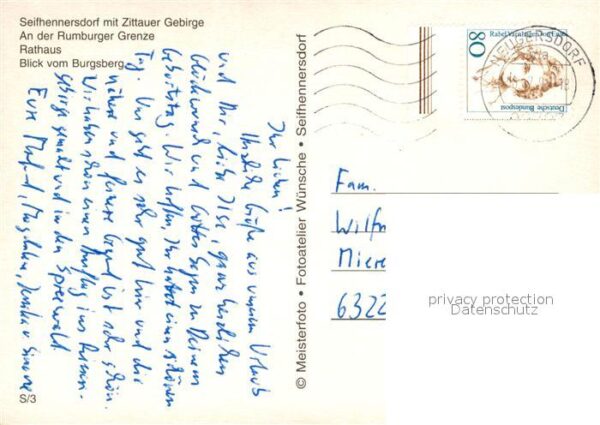 Seifhennersdorf mit Zittauer Gebirge
An der Rumburger Grenze
Rathaus
Blick vom Burgsberg
Ihr Lieben!
Herzliche Grüße aus unserem Urlaub
und Dir, liebe Ilse, ganz herzlichen
Glückwunsch und Gottes Segen zu Deinem
Geburtstag. Wir hoffen, Ihr hattet einen schönen
Tag. Uns geht es sehr gut hier und die
nähere und fernere Gegend ist sehr schön.
Wir haben schon einen Ausflug ins Riesen-
gebirge gemacht und in den Spreewald.
Eure
S/3
© Meisterfoto • Fotoatelier Wünsche • Seifhennersdorf
80
Rahel Varnhagen von Ense
Deutsche Bundespost
NEUGERSDORF
Fam.
Wilf
Miere
6322
privacy protection
Datenschutz